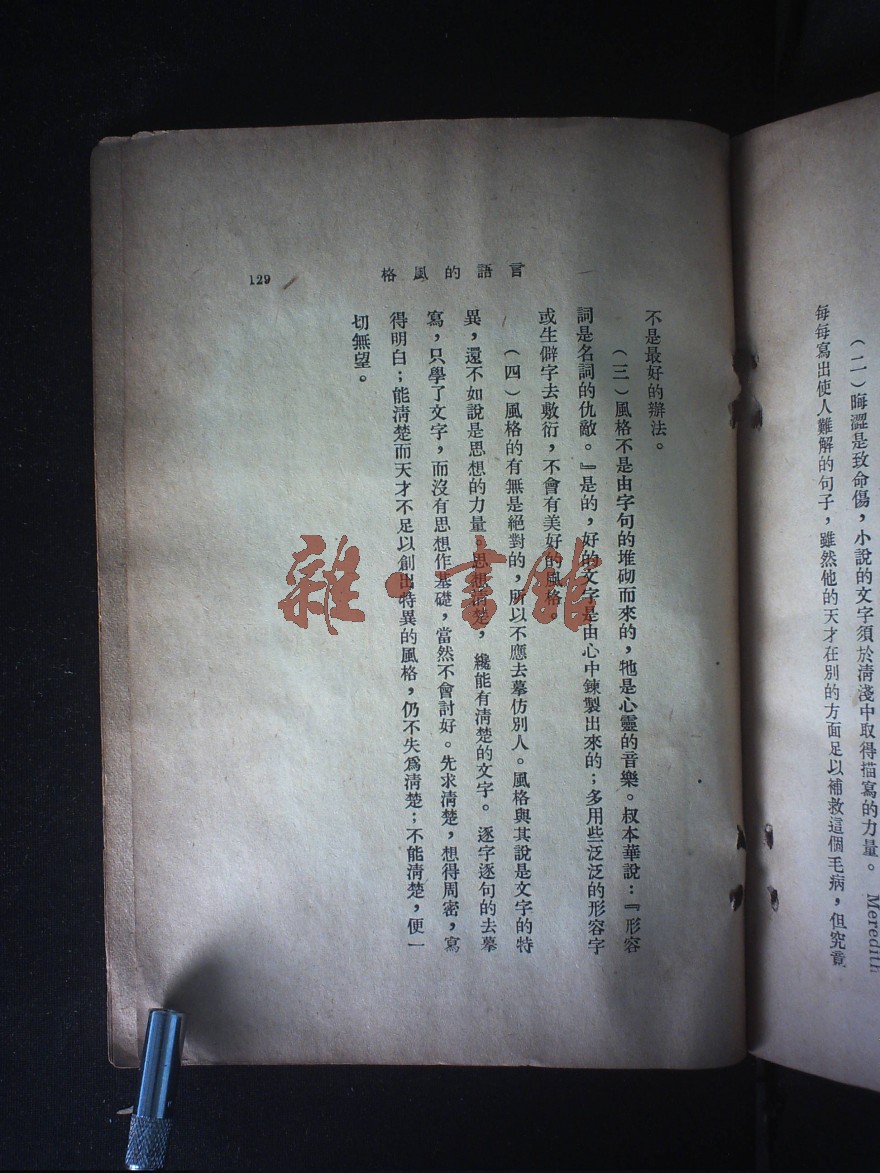 （二）晦澀是致命傷，小說的文字須於清淺中取得描寫的力量。Meredith
每每寫出使人難解的句子，雖然他的天才在別的方面足以補救這個毛病，但究竟
言語的風格
129
不是最好的辦法。
（三）風格不是由字句的堆砌而來的，牠是心靈的音樂。叔本華說：『形容
詞是名詞的仇敵。』是的，好的文字是由心中鍊製出來的；多用些泛泛的形容字
或生僻字去敷衍，不會有美好的風格。
（四）風格的有無是絕對的，所以不應去摹仿別人。風格與其說是文字的特
異，還不如說是思想的力量。思想清楚，纔能有清楚的文字。逐字逐句的去摹
寫，只學了文字，而沒有思想作基礎，當然不會討好。先求清楚，想得周密，寫
得明白；能清楚而天才不足以創出特異的風格，仍不失爲清楚；不能清楚，便一
切無望。
雜·書館